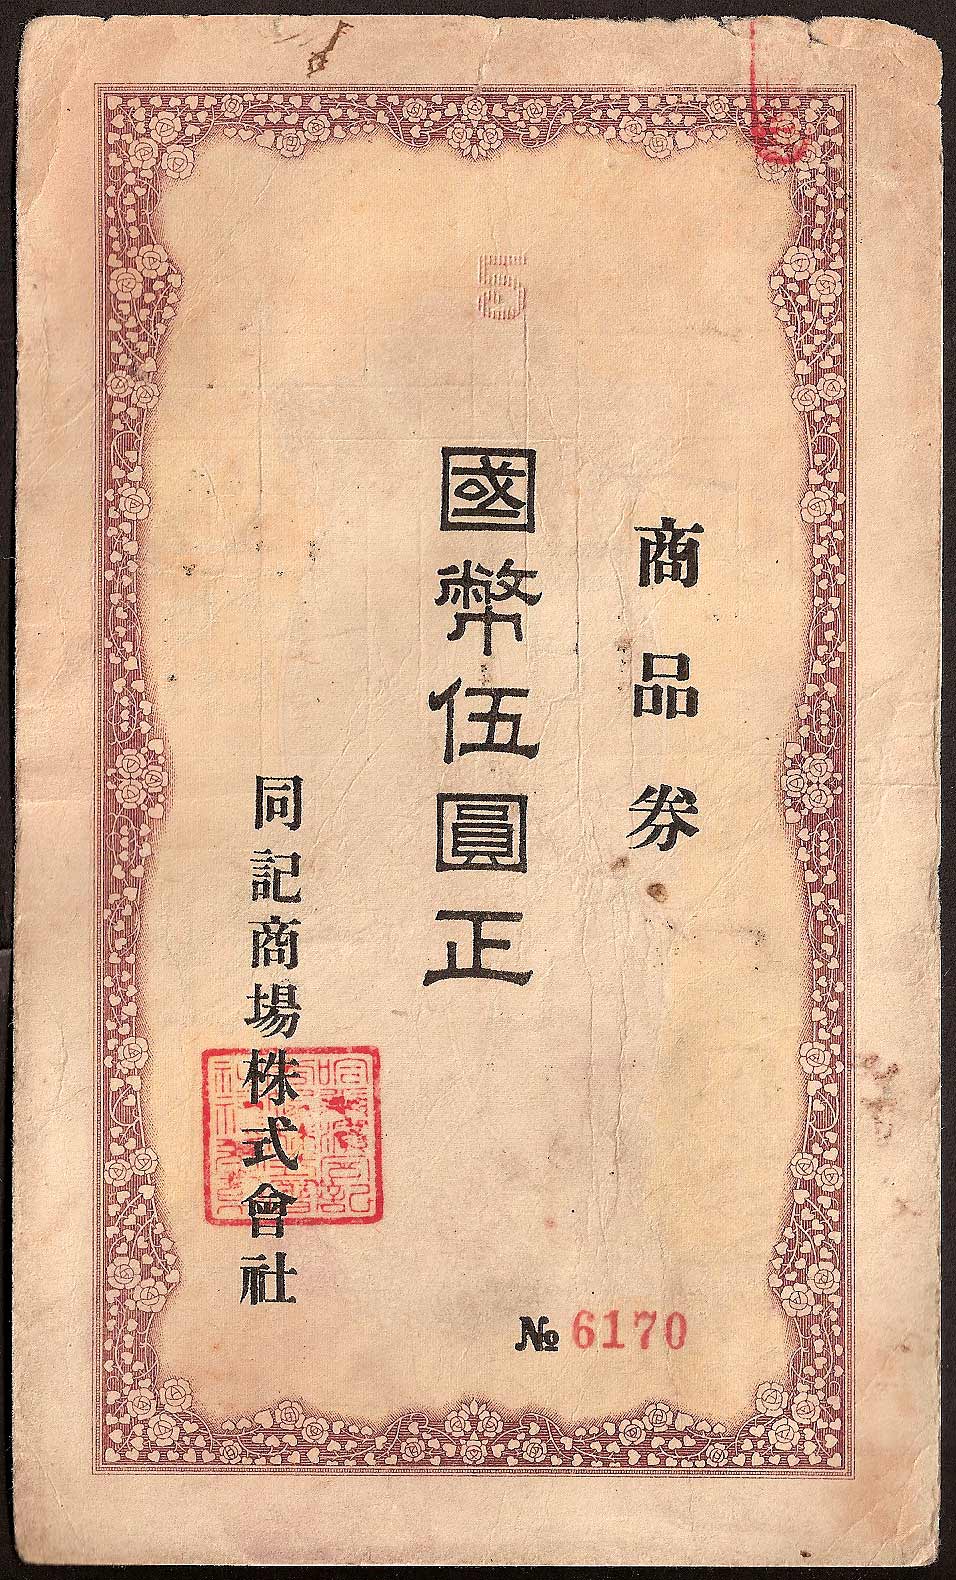 商品券
國幣伍圓正
同記商場株式會社
№ 6170
5